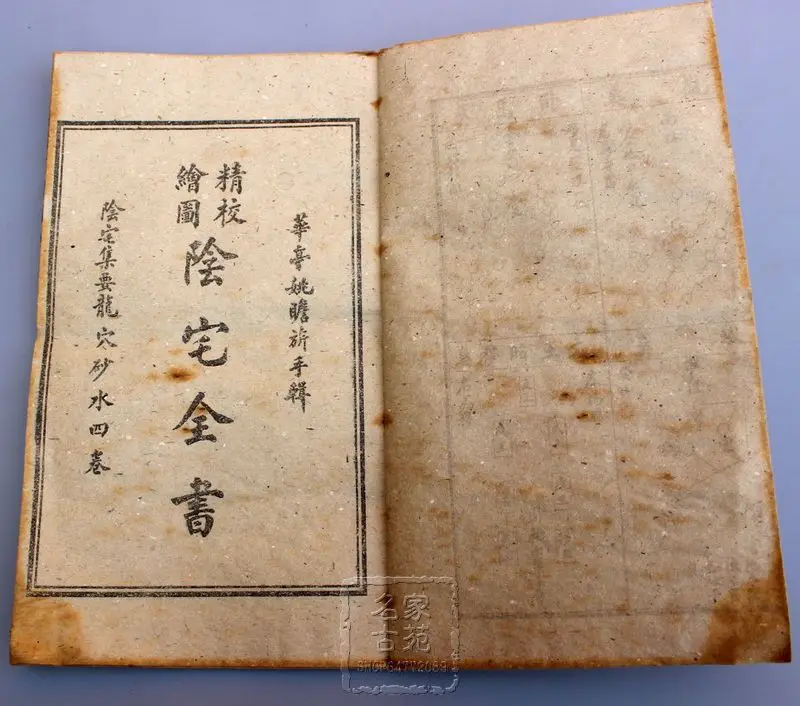 華亭姚瞻旂手輯
精校
繪圖
陰宅全書
陰宅集要龍穴砂水四卷
名家
古苑
SHOP64772069